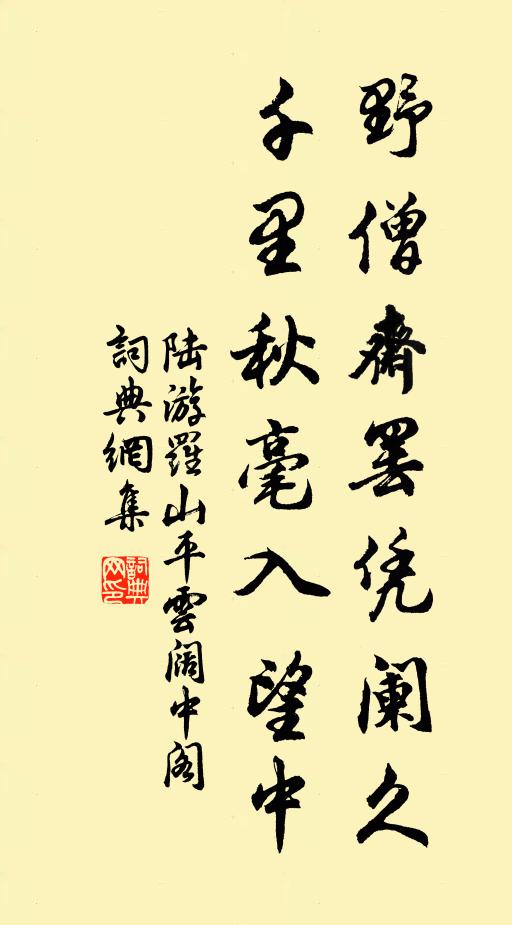 野僧齋罷凭阑久
千里秋毫入望中
陆游羅山平雲閣中阁
詞典網集
詞典
网印